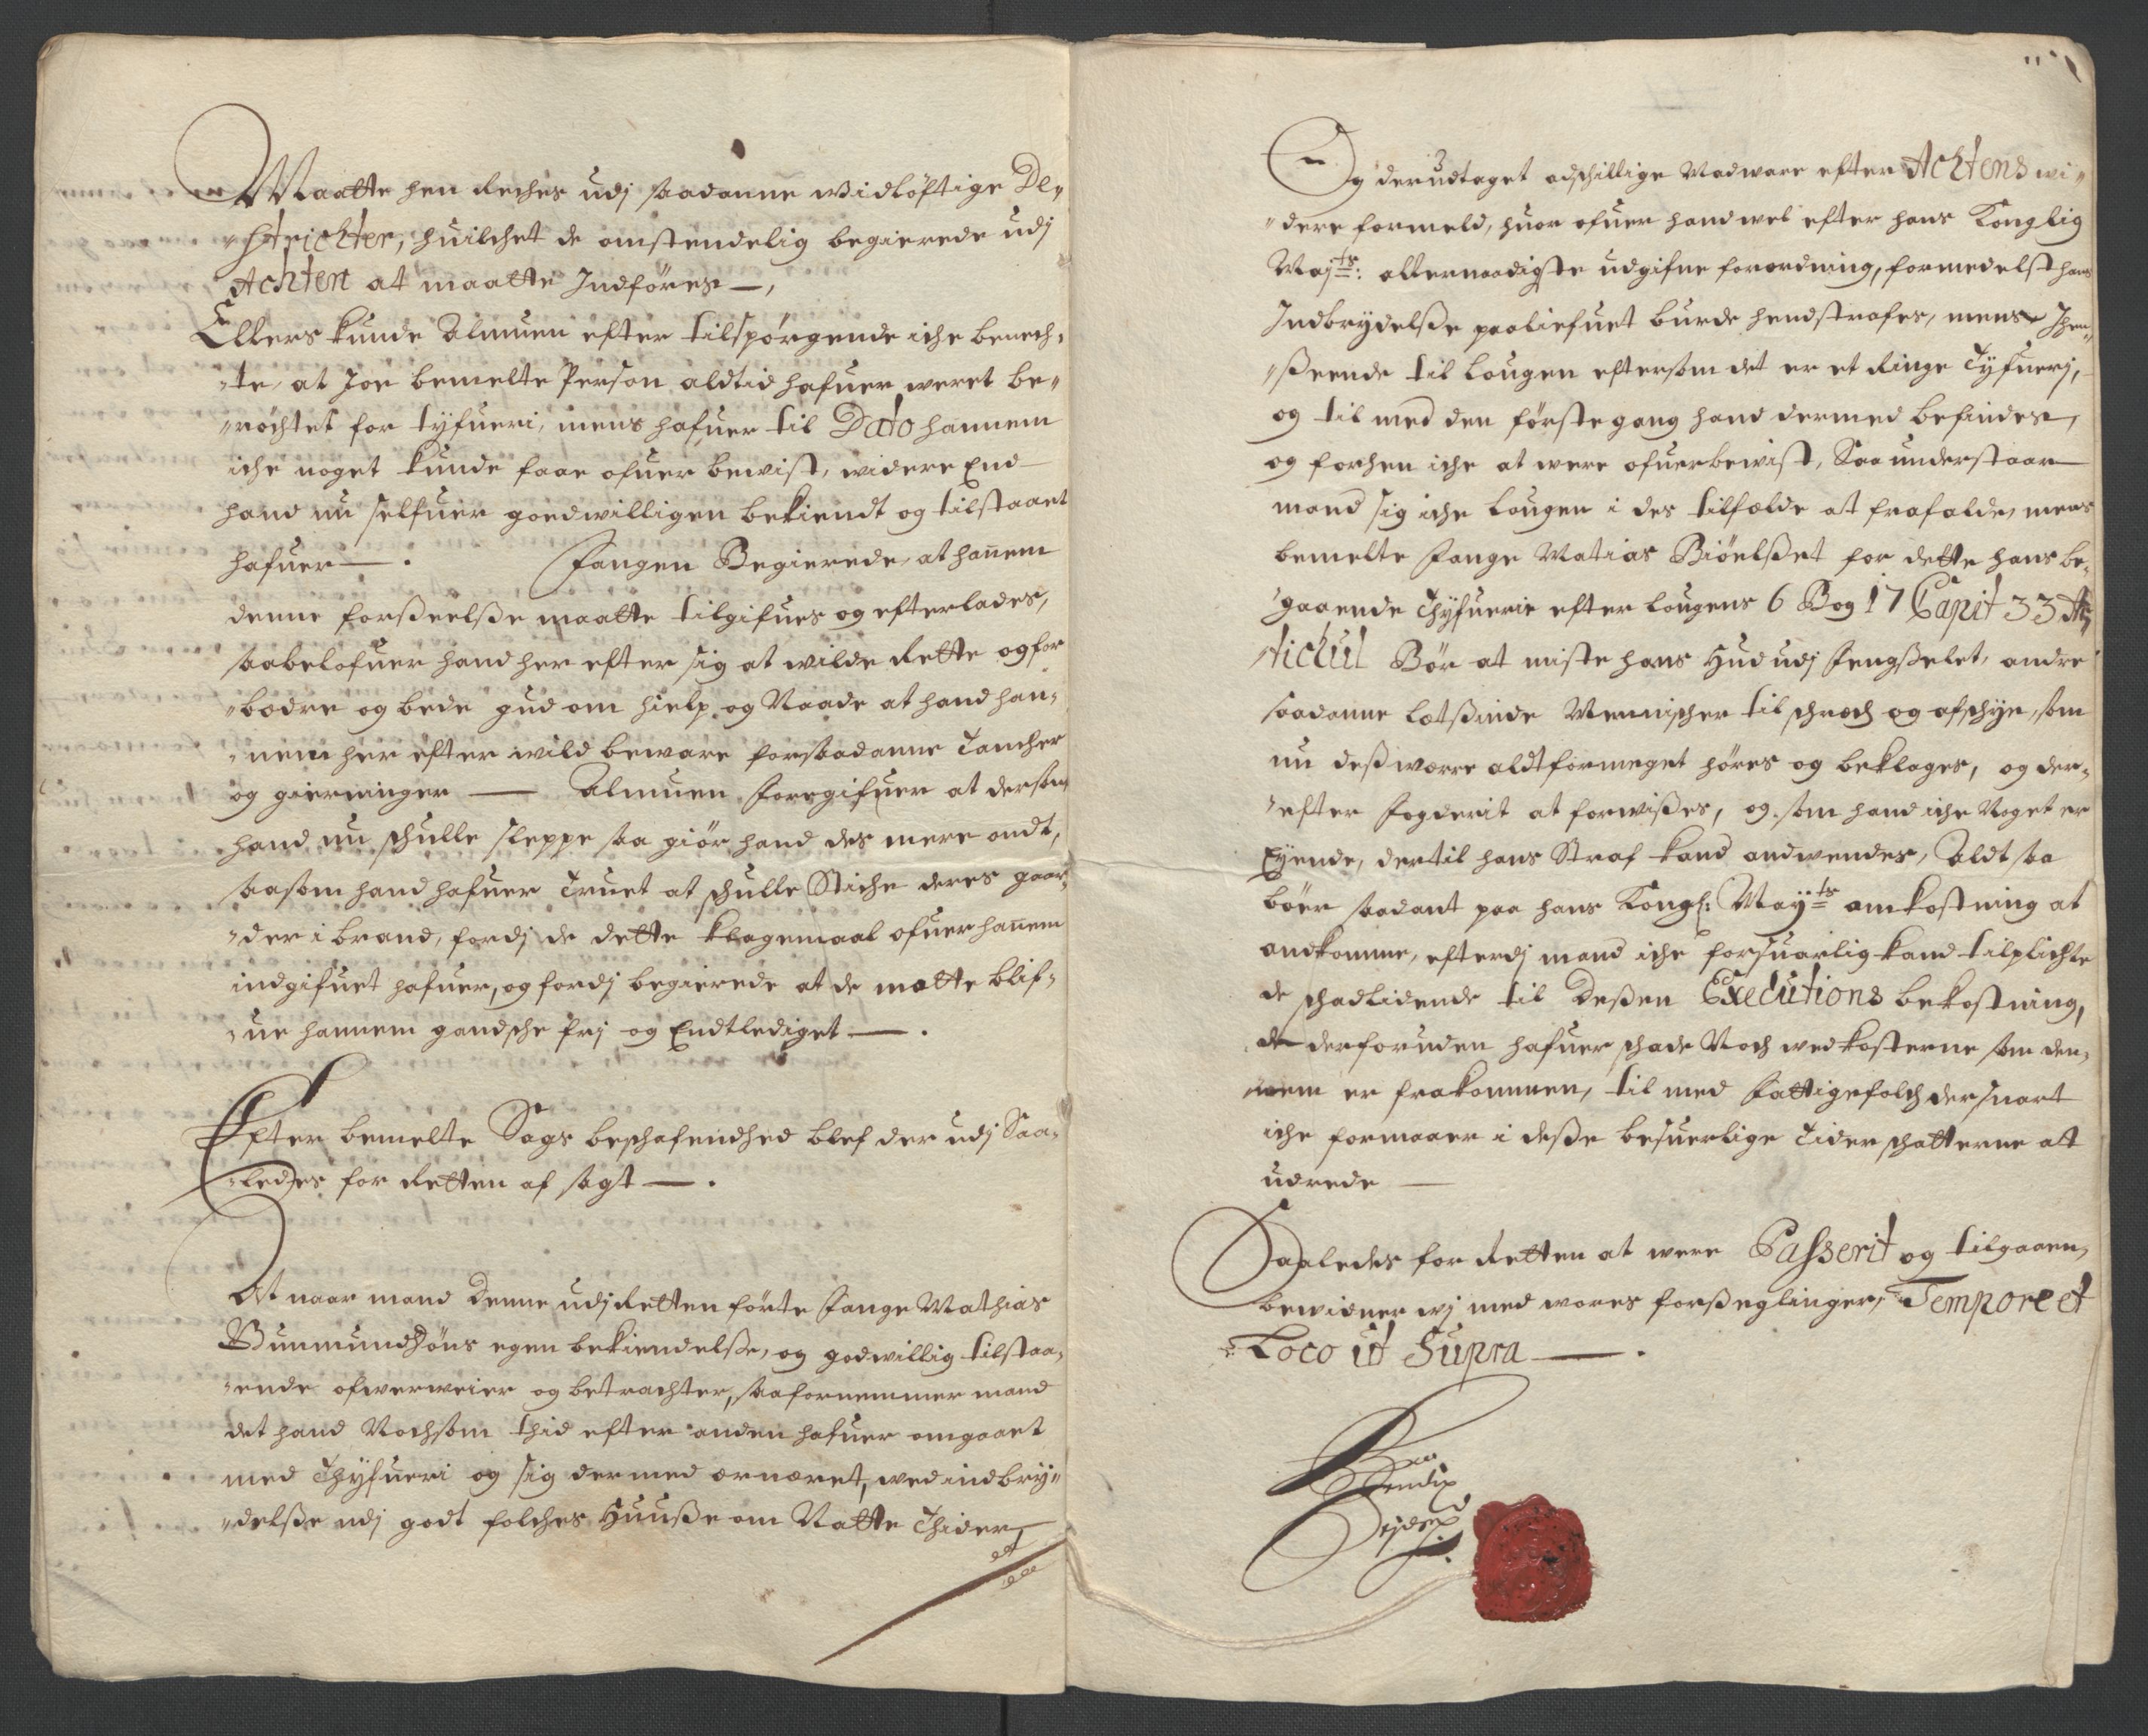 Maatte hen Reches udj saadanne widløftige De„
„strichter, huilchet de omstendelig begierede udj
Achten at maatte Indføres —,
Ellers kunde Almuen efter tilspørgende iche benech„
„te, at Joe bemelte Person aldtid hafuer weret be„
„røchtet for tyfueri, mens hafuer til Dato hannem
iche noget kunde faae ofuer bewist, widere End
hand nu selfuer goedwilligen bekiendt og tilstaaet
hafuer —. Fangen Begierede, at hanem
denne forßeelße maatte tilgifues og efterlades,
saabelofuer hand her efter sig at wilde Rette og for
„bedre og bede gud om hielp og Naade at hand han„
„nem her efter wild beware for saadanne Tancher
og gierninger — Almuen foregifuer at dersom
hand nu schulle sleppe saa giør hand des mere ondt,
saasom hand hafuer Truet at schulle Stiche deres gaar„
„der i brand, fordj de dette klagemaal ofuer hanem
indgifuet hafuer, og fordj begierede at de motte blif„
„ue hannem gandsche frj og Endtlediget —.
Efter bemelte Sags beschafendhed blef der udj Saa„
„ledes for Retten af sagt —.
At naar mand denne udj Retten førte Fange Mathias
Gunmundsøns egen bekiendelße, og godwillig tilstaa„
„ende ofwerweier og betrachter, saa fornemmer mand
det hand Nochsom thid efter anden hafuer omgaaet
med Thyfueri og sig dermed ernæret, wed indbry„
„delße udj godt folches Huuße om Natte Thider,
Og der udtaget adschillige Madware efter Achtens wi„
„dere formeld, huor ofuer hand wel efter hans Konglig
Mayts: allernaadigste udgifne forordning, formedelst hans
Indbrydelße paaliefuet burde hendstrafes, mens Hen„
„ßeende til Lougen eftersom det er et Ringe Tyfuerj,
og til med den første gang hand dermed befindes,
og forhen iche at were ofuerbewist, Saa understaar
mand sig iche Lougen i des tilfælde at frafalde, mens
bemelte Fange Matias Biöelßet for dette hans be„
„gaaende Thyfuerie efter Lougens 6 Bog 17 Capit 33 Ar„
„tickul Bør at miste hans Hud udj Fengßelet, andre
saadanne Letßinde Mennischer til schrech og afschye, som
nu deß werre aldtformeget høres og beklages, og der„
„efter Fogderit at forwißes, og som hand iche Noget er
Eyende, dertil hans Straf kand andwendes, Aldt saa
böer saadant paa hans Kongl: Mayts omkostning at
andkomme, efterdj mand iche forsuarlig kand tilplichte
de schadlidende til deßen Executions bekostning,
de derforuden hafuer schade Noch wed kosterne som den„
„nem er frakommen, til med fattigefolch der snart
iche formaaer i deße besuerlige Tider schatterne att
udrede —
Saaledes for Retten at were Passerit og tilgaaen,
bewidner wj med wores forßeglinger, Tempore et
Loco ut Supra —.